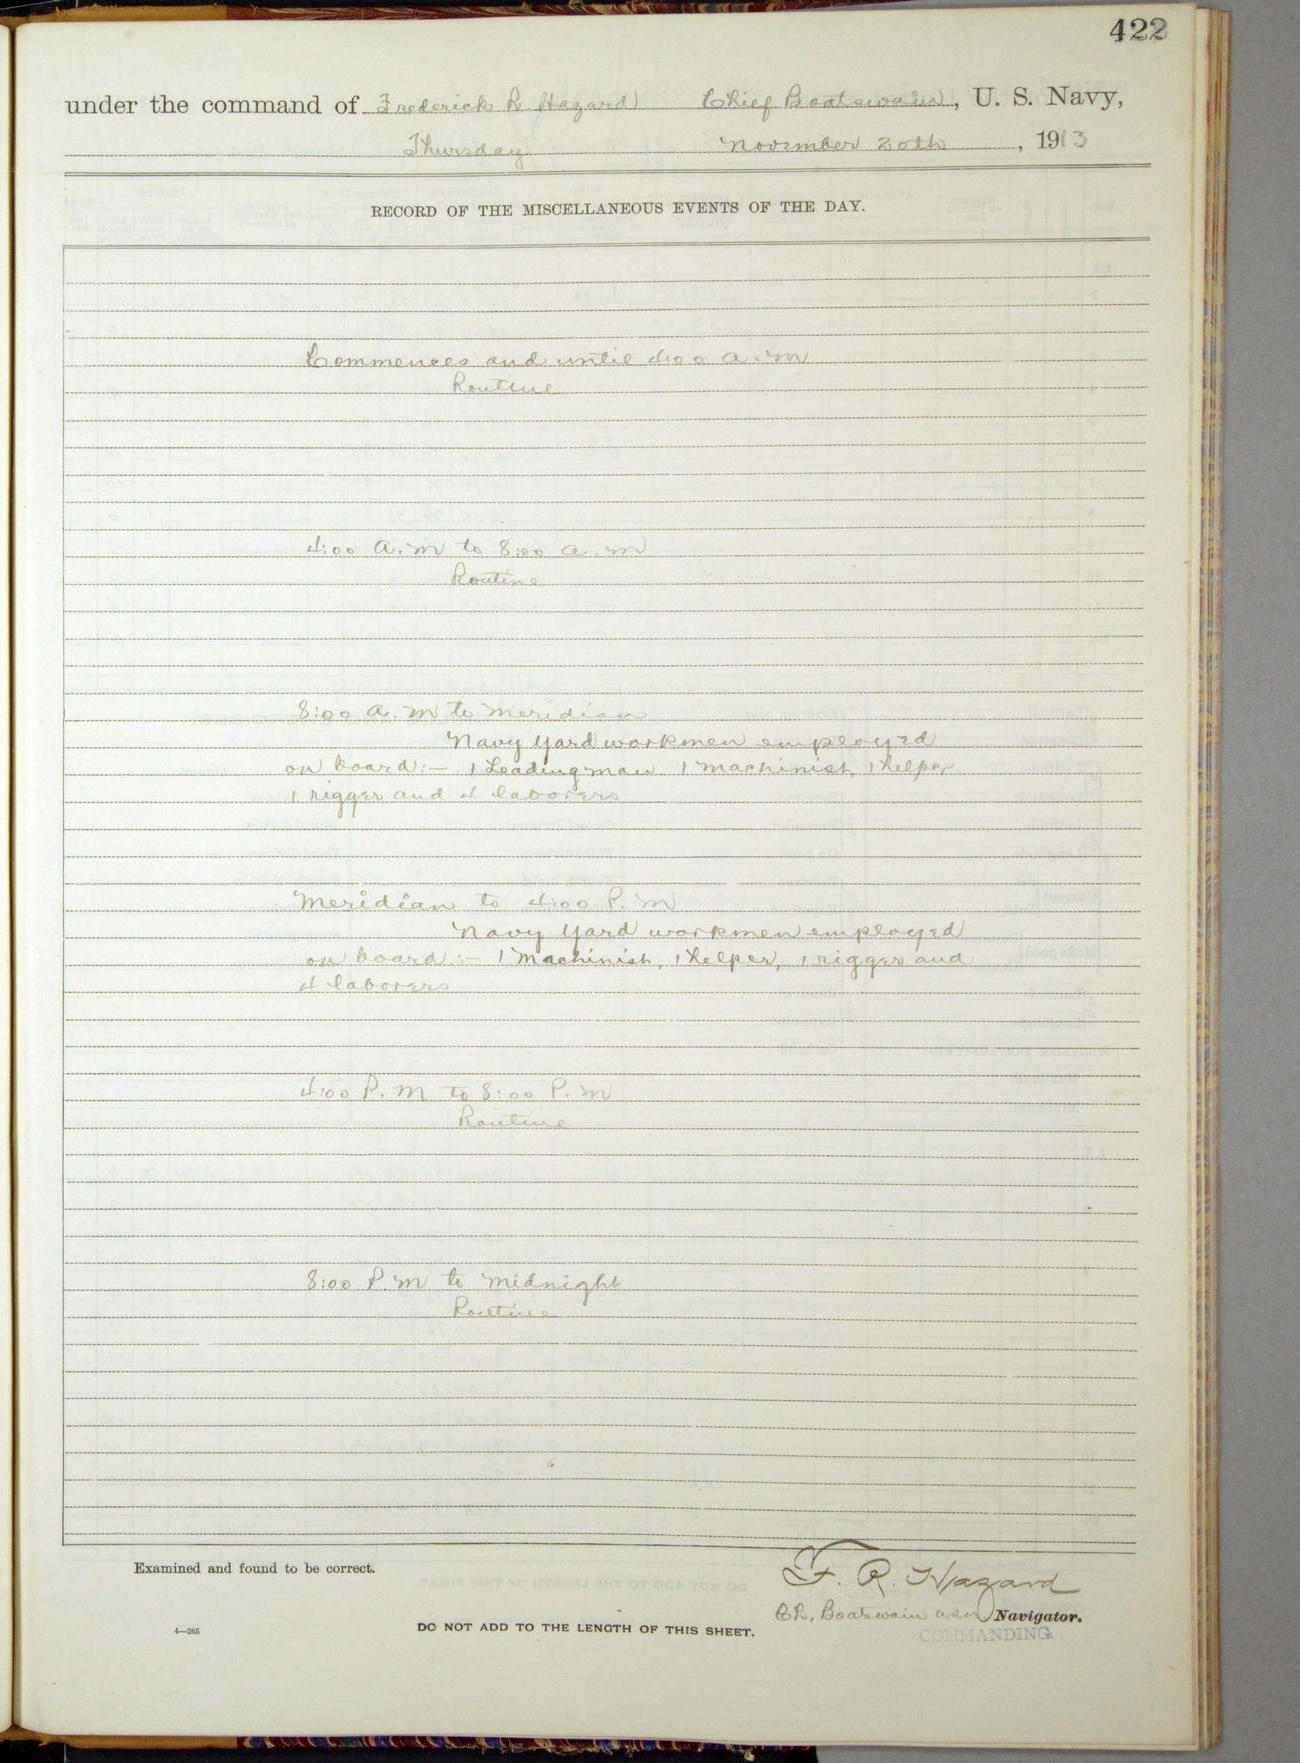 422
under the command of Frederick R Hazard Chief Boatswain, U. S. Navy,
Thursday November 20th, 1913
RECORD OF THE MISCELLANEOUS EVENTS OF THE DAY.
Commences and until 4:00 a.m
Routine
4:00 a.m to 8:00 a.m
Routine
8:00 a.m to meridian
Navy Yard workmen employed
on board:- 1 Leadingman 1 machinist, 1 helper
1 rigger and 4 laborers
Meridian to 4:00 P.m
Navy Yard workmen employed
on board:- 1 machinist, 1 helper, 1 rigger and
4 laborers
4:00 P.m to 8:00 P.m
Routine
8:00 P.m to midnight
Routine
Examined and found to be correct.
F. R. Hazard
Ch. Boatswain USN Navigator.
COMMANDING.
4—265
DO NOT ADD TO THE LENGTH OF THIS SHEET.